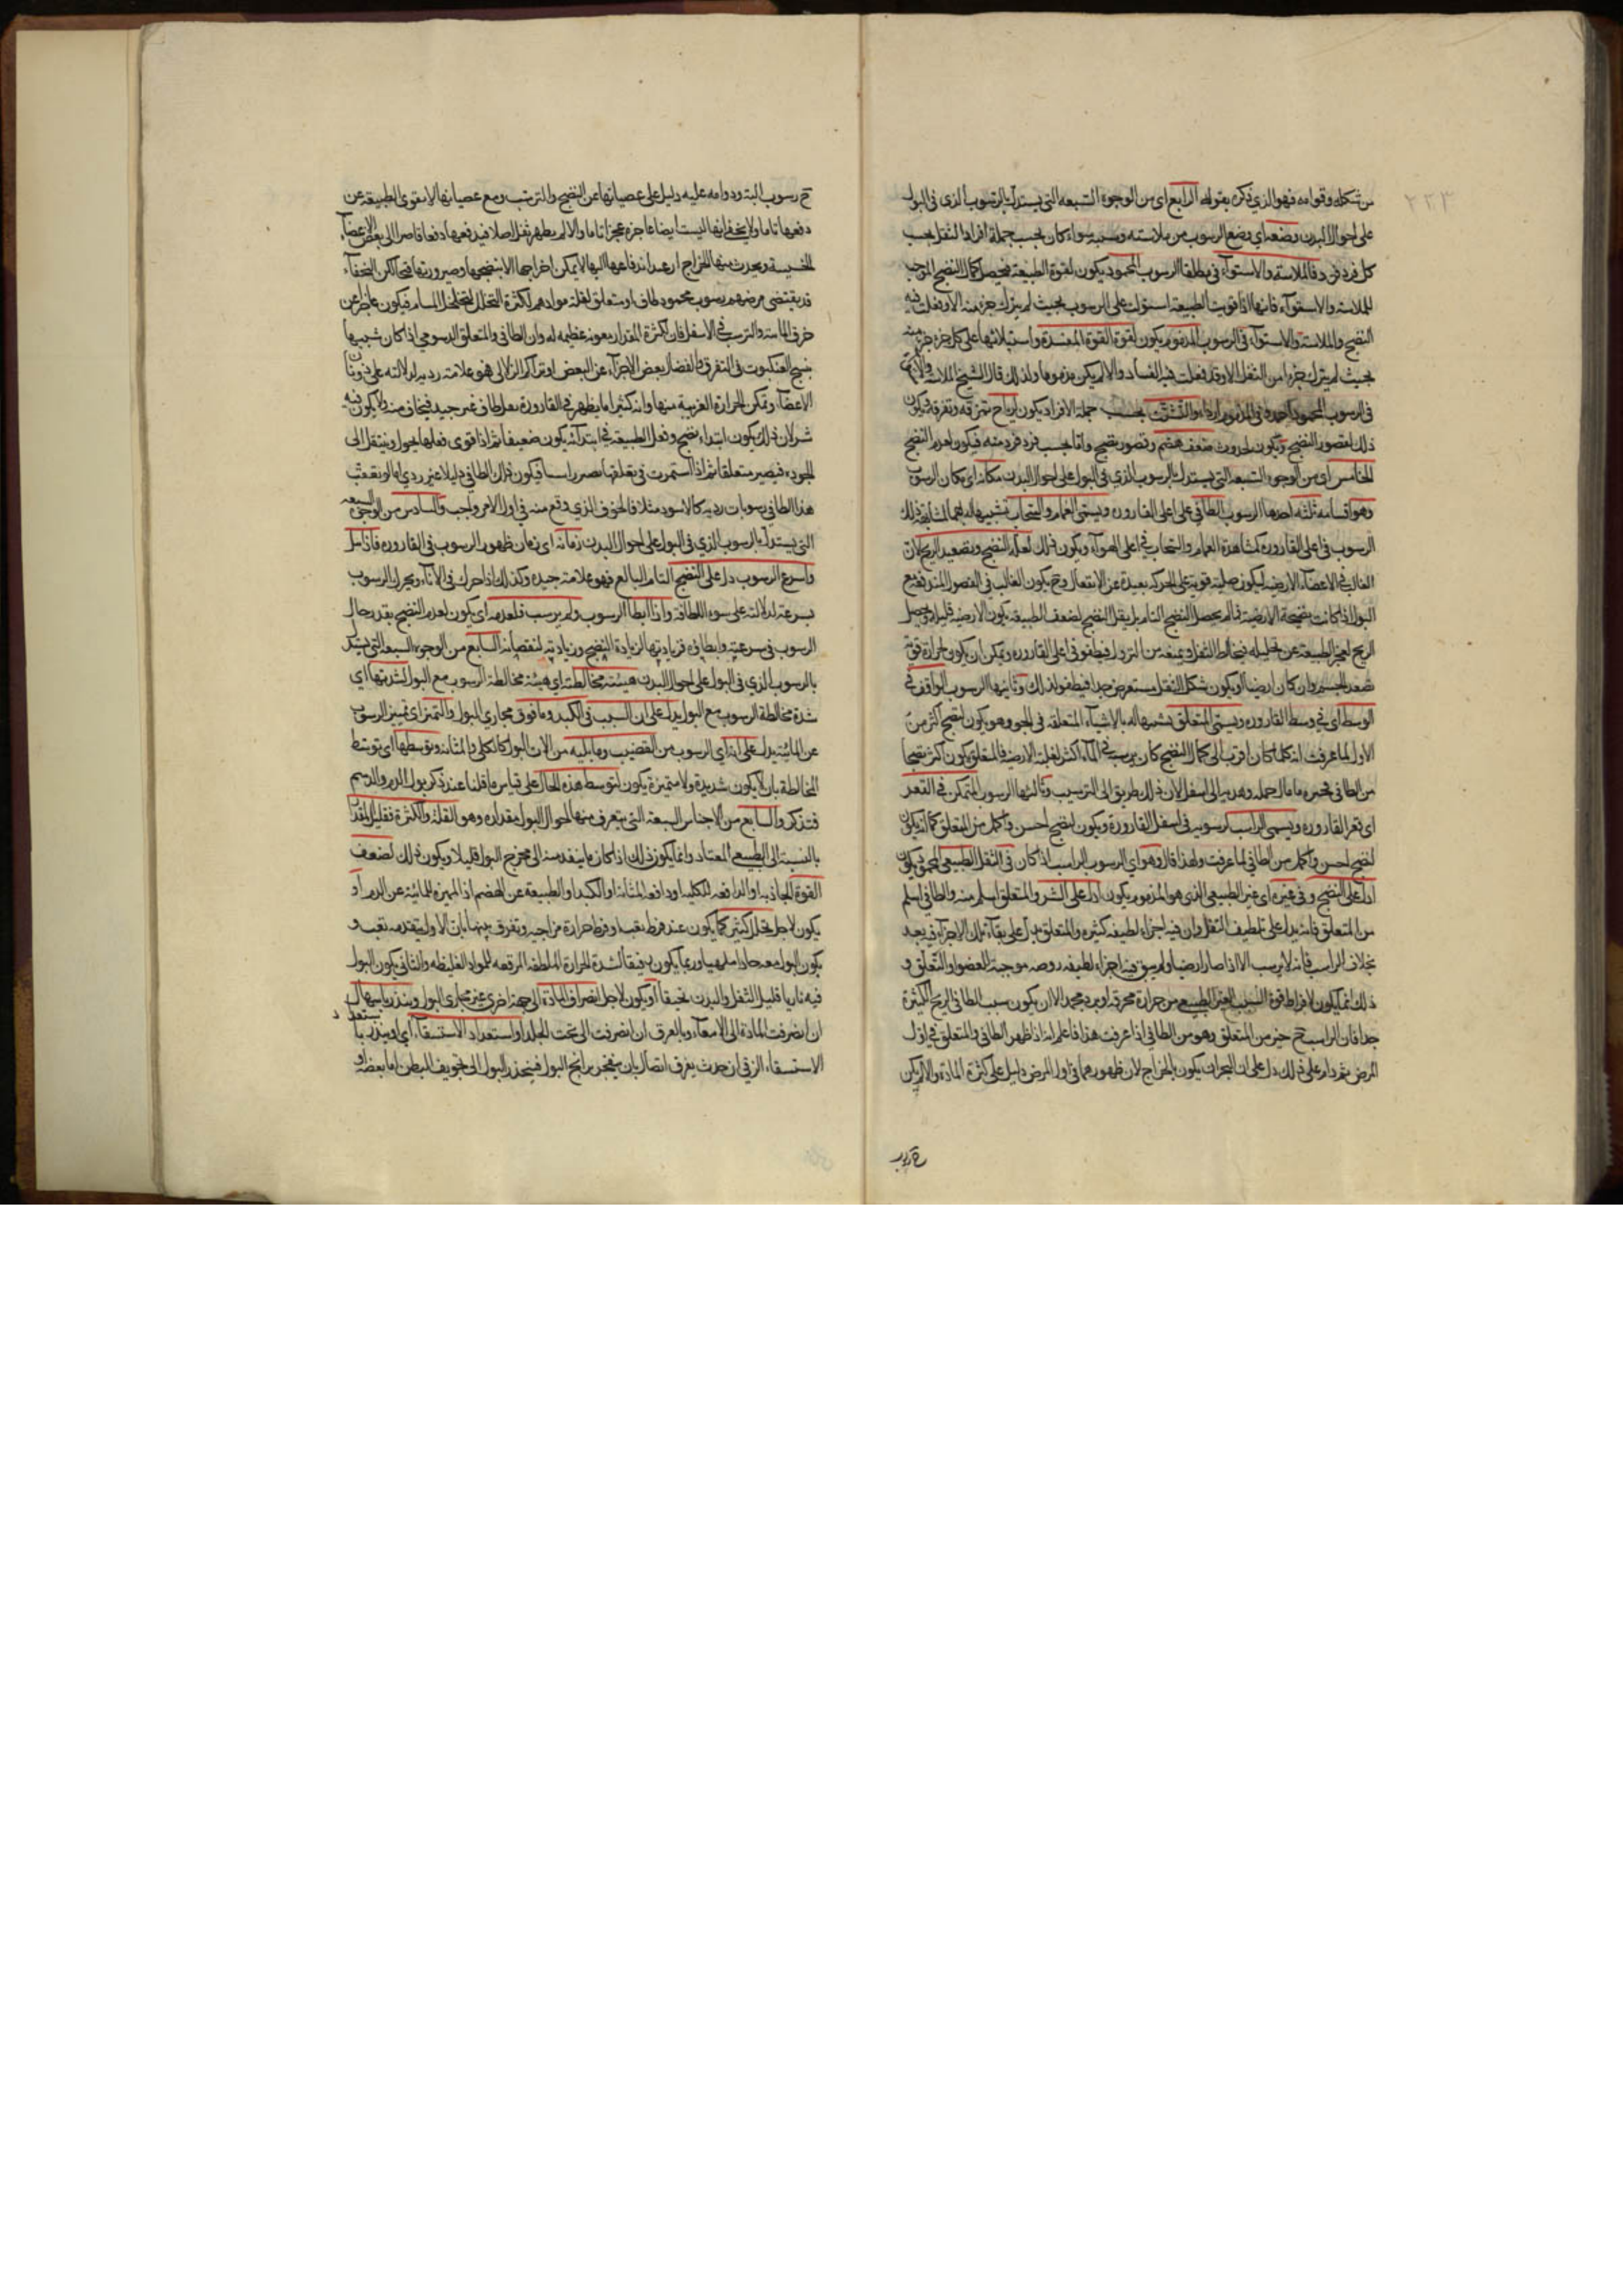 ٢٢٣
من شكله وقوامه فهو الذي ذكره بقوله الرابع اى من الوجوه السبعه التى يستدل بالرسوب الذى فى البول
على احوال البدن وضعه اي وضع الرسوب من ملاسته وسببه سواء كان بحسب جملة افراد الثفل او بحسب
كل فرد فرد فالملاسة والاستواء فى مطلقا الرسوب المحمود يكون لقوة الطبيعة فيحصل كمال النضج الموجب
للملاسة والاستواء فانها اذا قويت الطبيعة استولت على الرسوب بحيث لم يترك جزء منه الا وفعلت فيه
النضج والملاسة والاستواء فى الرسوب المذموم يكون لقوة القوة المفسدة واستيلائها على كل جزء جزء منه
بحيث لم يترك جزءا من الثفل الا وقد فعلت فيه الفساد والا لم يكن مذموما ولذلك قال الشيخ الملاسة
فى الرسوب المحمود احمد وفى المذموم اردأ والتشتت بحسب جملة الافراد يكون لرياح تمزقه وتفرقه ويكون
ذلك لقصور النضج ويكون لحدوث ضعف هضم وقصور نضج واما بحسب فرد فرد منه فيكون لعدم النضج
الخامس اى من الوجوه السبعه التى يستدل بالرسوب الذي فى البول على احوال البدن مكانه اى مكان الرسوب
وهو اقسامه ثلثه احدها الرسوب الطافى على اعلى القاروره ويسمى الغمام والسحاب تشبيها له بهما لمشابهة ذلك
الرسوب فى اعلى القاروره كمشاهدة الغمام والسحاب فى اعلى الهواء ويكون ذلك لعدم النضج وتصعيد الريح لان
الغالب فى الاعضاء الارضيه ليكون صلبة قوية على الحركه بعيدة عن الانفعال وح يكون الغالب فى الفصول المندفعه مع
البول اذا كانت نضيجة الارضية فما لم يحصل النضج التام بل يقل النضج لضعف الطبيعة يكون الارضية قليلة ويحصل
الريح لعجز الطبيعة عن تحليله فيخالط الثفل ويمنعه من النزول فيطفو فى اعلى القاروره ويمكن ان يكون لحرارة قوية
تصعد الجسم وان كان ارضيا او يكون شكل الثفل مستعرض جدا فيطفو لذلك وثانيها الرسوب الواقف فى
الوسط اى فى وسط القاروره ويسمى المتعلق تشبيها له بالاشياء المتعلقة فى الجو وهو يكون لنضج اكثر من
الاول لما عرفت انه كلما كان اقرب الى كمال النضج كان يرسب فى الماء اكثر لغلبة الارضية فالمتعلق يكون اكثر نضجا
من الطافى
اى قعر القاروره ويسمى الراسب لرسوبه فى اسفل القارورة ويكون لنضج احسن واكمل من المتعلق كما انه يكون
لنضج احسن واكمل من الطافى لما عرفت ولهذا قال وهو اي الرسوب الراسب اذا كان فى الثفل الطبيعى المحمود يكون
ادل على النضج وفى غيره اى غير الطبيعى الذى هو المذموم يكون ادل على الشر والمتعلق اسلم منه والطافى اسلم
من المتعلق فانه يدل على تلطيف الثفل وان فيه اجزاء لطيفه كثيره والمتعلق يدل على بقاء تلك الاجزاء فيه بعد
بخلاف الراسب فانه لا يرسب الا اذا صار ارضيا ولم يبق فيه اجزاء لطيفه روحه موجبة للصعود او التعلق و
ذلك انما يكون لافراط قوة السبب الغير الطبيعى من حرارة محرقة او برد مجمد الا ان يكون سبب الطافى الريح الكثيرة
جدا فان الراسب ح خير من المتعلق وهو من الطافى اذا عرفت هذا فاعلم انه اذا ظهر الطافى والمتعلق فى اول
المرض ثم دام على ذلك دل على ان البحران يكون بالخراج لان ظهورهما فى اول المرض دليل على كثرة المادة والا لم يكن
ح رسوب
ح رسوب البته ودوامه عليه دليل على عصيانها عن النضج والترتيب ومع عصيانها لا تقوى الطبيعة عن
دفعها تاما ولا يخفى انها ليست ايضا عاجزة عجزا تاما والا لم يظهر ثفل اصلا فيدفعها دفعا قاصرا الى بعض الاعضاء
الخسيسة ويحدث منها الخراج اذ بعد اندفاعها اليها لا يمكن اخراجها الا بنضجها وصيرورتها قيحا لكن النحفاء
قد يقتضى مرضهم برسوب محمود طاف او متعلق لقلة موادهم لكثرة التحلل لتخلخل المسام فيكون عاجزا عن
خرق المائية والترسب فى الاسفل فان لكثرة المقدار معونة عظيمه له وان الطافى والمتعلق الدسومى اذا كان شبيها
بنسج العنكبوت فى التفرق وانفصال بعض الاجزاء عن البعض او تراكم الزلالى فهو علامة رديه لدلالته على ذوبان
الاعضاء وتمكن الحرارة الغريبة منها وانه كثيرا ما يظهر فى القارورة ثفل طاف غير جيد فيخاف منه ولا يكون فيه
شر لان ذلك يكون ابتداء نضج وفعل الطبيعة فى ابتدائه يكون ضعيفا ثم اذا قوى فعلها يحول وينتقل الى
الجوده فيصير متعلقا ثم اذا استمرت فى فعلها يصير راسبا فيكون ذلك الطافى دليلا غير ردي اما لو تعقب
هذا الطافى رسوبات رديه كالاسود مثلا فالخوف الذي وقع منه فى اول الامر واجب والسادس من الوجوه السبعه
التى يستدل بالرسوب الذي فى البول على احوال البدن زمانه اى زمان ظهور الرسوب فى القاروره فاذا
واسرع الرسوب دل على النضج التام البالغ فهو علامة جيده وكذلك اذا حرك فى الاناء ويحرك الرسوب
بسرعة لدلالته على سوء اللطافة واذا ابطأ الرسوب ولم يرسب فلعدمه اى يكون لعدم النضج بقدر حال
الرسوب فى سرعته وابطائه فزيادتها لزيادة النضج وزيادته لنقصانه السابع من الوجوه السبعة التى يستدل
بالرسوب الذي فى البول على احوال البدن هيئة مخالطته اى هيئة مخالطة الرسوب مع البول لشدتها اى
شدة مخالطة الرسوب مع البول يدل على ان السبب فى الكبد وما فوق مجاري البول والتميز اى تميز الرسوب
عن المائية يدل على انه اي الرسوب من القضيب وما يليه من الات البول كالكلى والمثانة وتوسطها اى توسط
المخالطة بان لا يكون شديدة ولا متميزة يكون لتوسط هذه الحال على قياس ما قلنا عند ذكر بول الدم والدسم
فتذكر والسابع من الاجناس السبعة التى يتعرف منها احوال البول مقداره وهو القلة والكثرة فقليل المقدار
بالنسبة الى الطبيعي المعتاد وانما يكون ذلك اذا كان ما ينفذ منه الى مخرج البول قليلا ويكون ذلك لضعف
القوة الجاذبه او الدافعه للكليه او دافعه للمثانة او الكبد او الطبيعة عن الهضم اذ المميزه للمائية عن الدم او
يكون لاجل تحلل كثير كما يكون عند فرط تعب او فرط حرارة مزاجية ويفرق بينهما بان الاول يتقدمه تعب و
يكون البول معه حادا ملتهبا وربما يكون رقيقا لشدة الحرارة الملطفة المرققه للمواد الغليظه والثانى يكون البول
فيه ناريا قليل الثفل والبدن نحيفا او يكون لاجل انصراف المادة الى جهة اخرى غير مجارى البول وينذر باسهال
ان انصرفت المادة الى الامعاء وبالعرق ان انصرفت الى تحت الجلد او استعداد الاستسقاء اى وينذر باستعداد
الاستسقاء الزقى ان حدث تفرق اتصال بان ينفجر برانج البول فينحدر البول الى تجويف البطن اما بعضه او